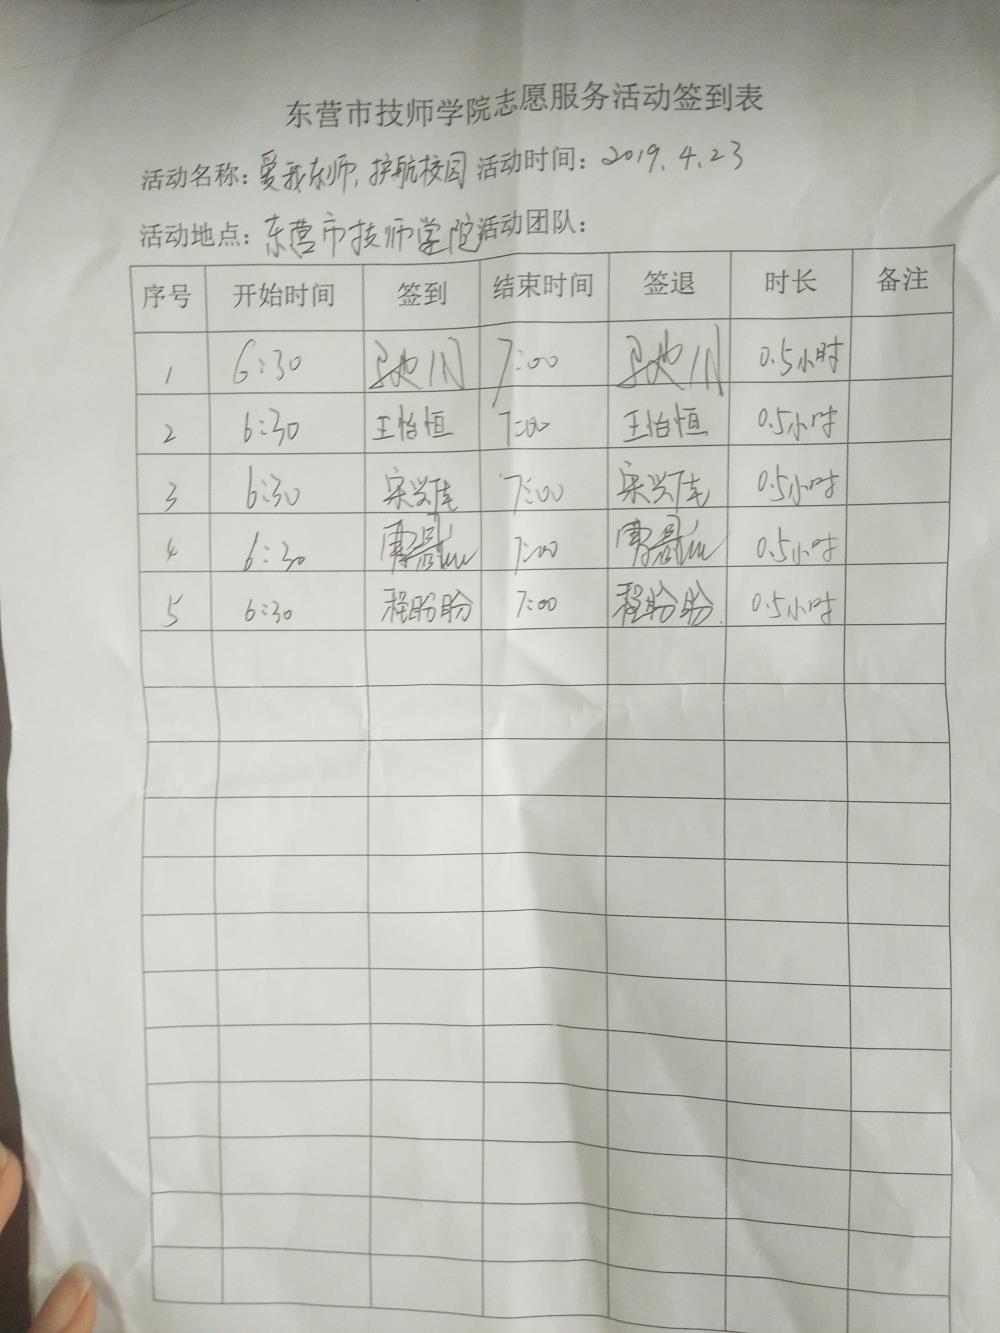 东营市技师学院志愿服务活动签到表
活动名称：爱我东师，护航校园 活动时间：2019.4.23
活动地点：东营市技师学院 活动团队：
序号 开始时间 签到 结束时间 签退 时长 备注
1 6:30 7:00 0.5小时
2 6:30 王怡恒 7:00 王怡恒 0.5小时
3 6:30 宋兴佳 7:00 宋兴佳 0.5小时
4 6:30 7:00 0.5小时
5 6:30 程盼盼 7:00 程盼盼 0.5小时